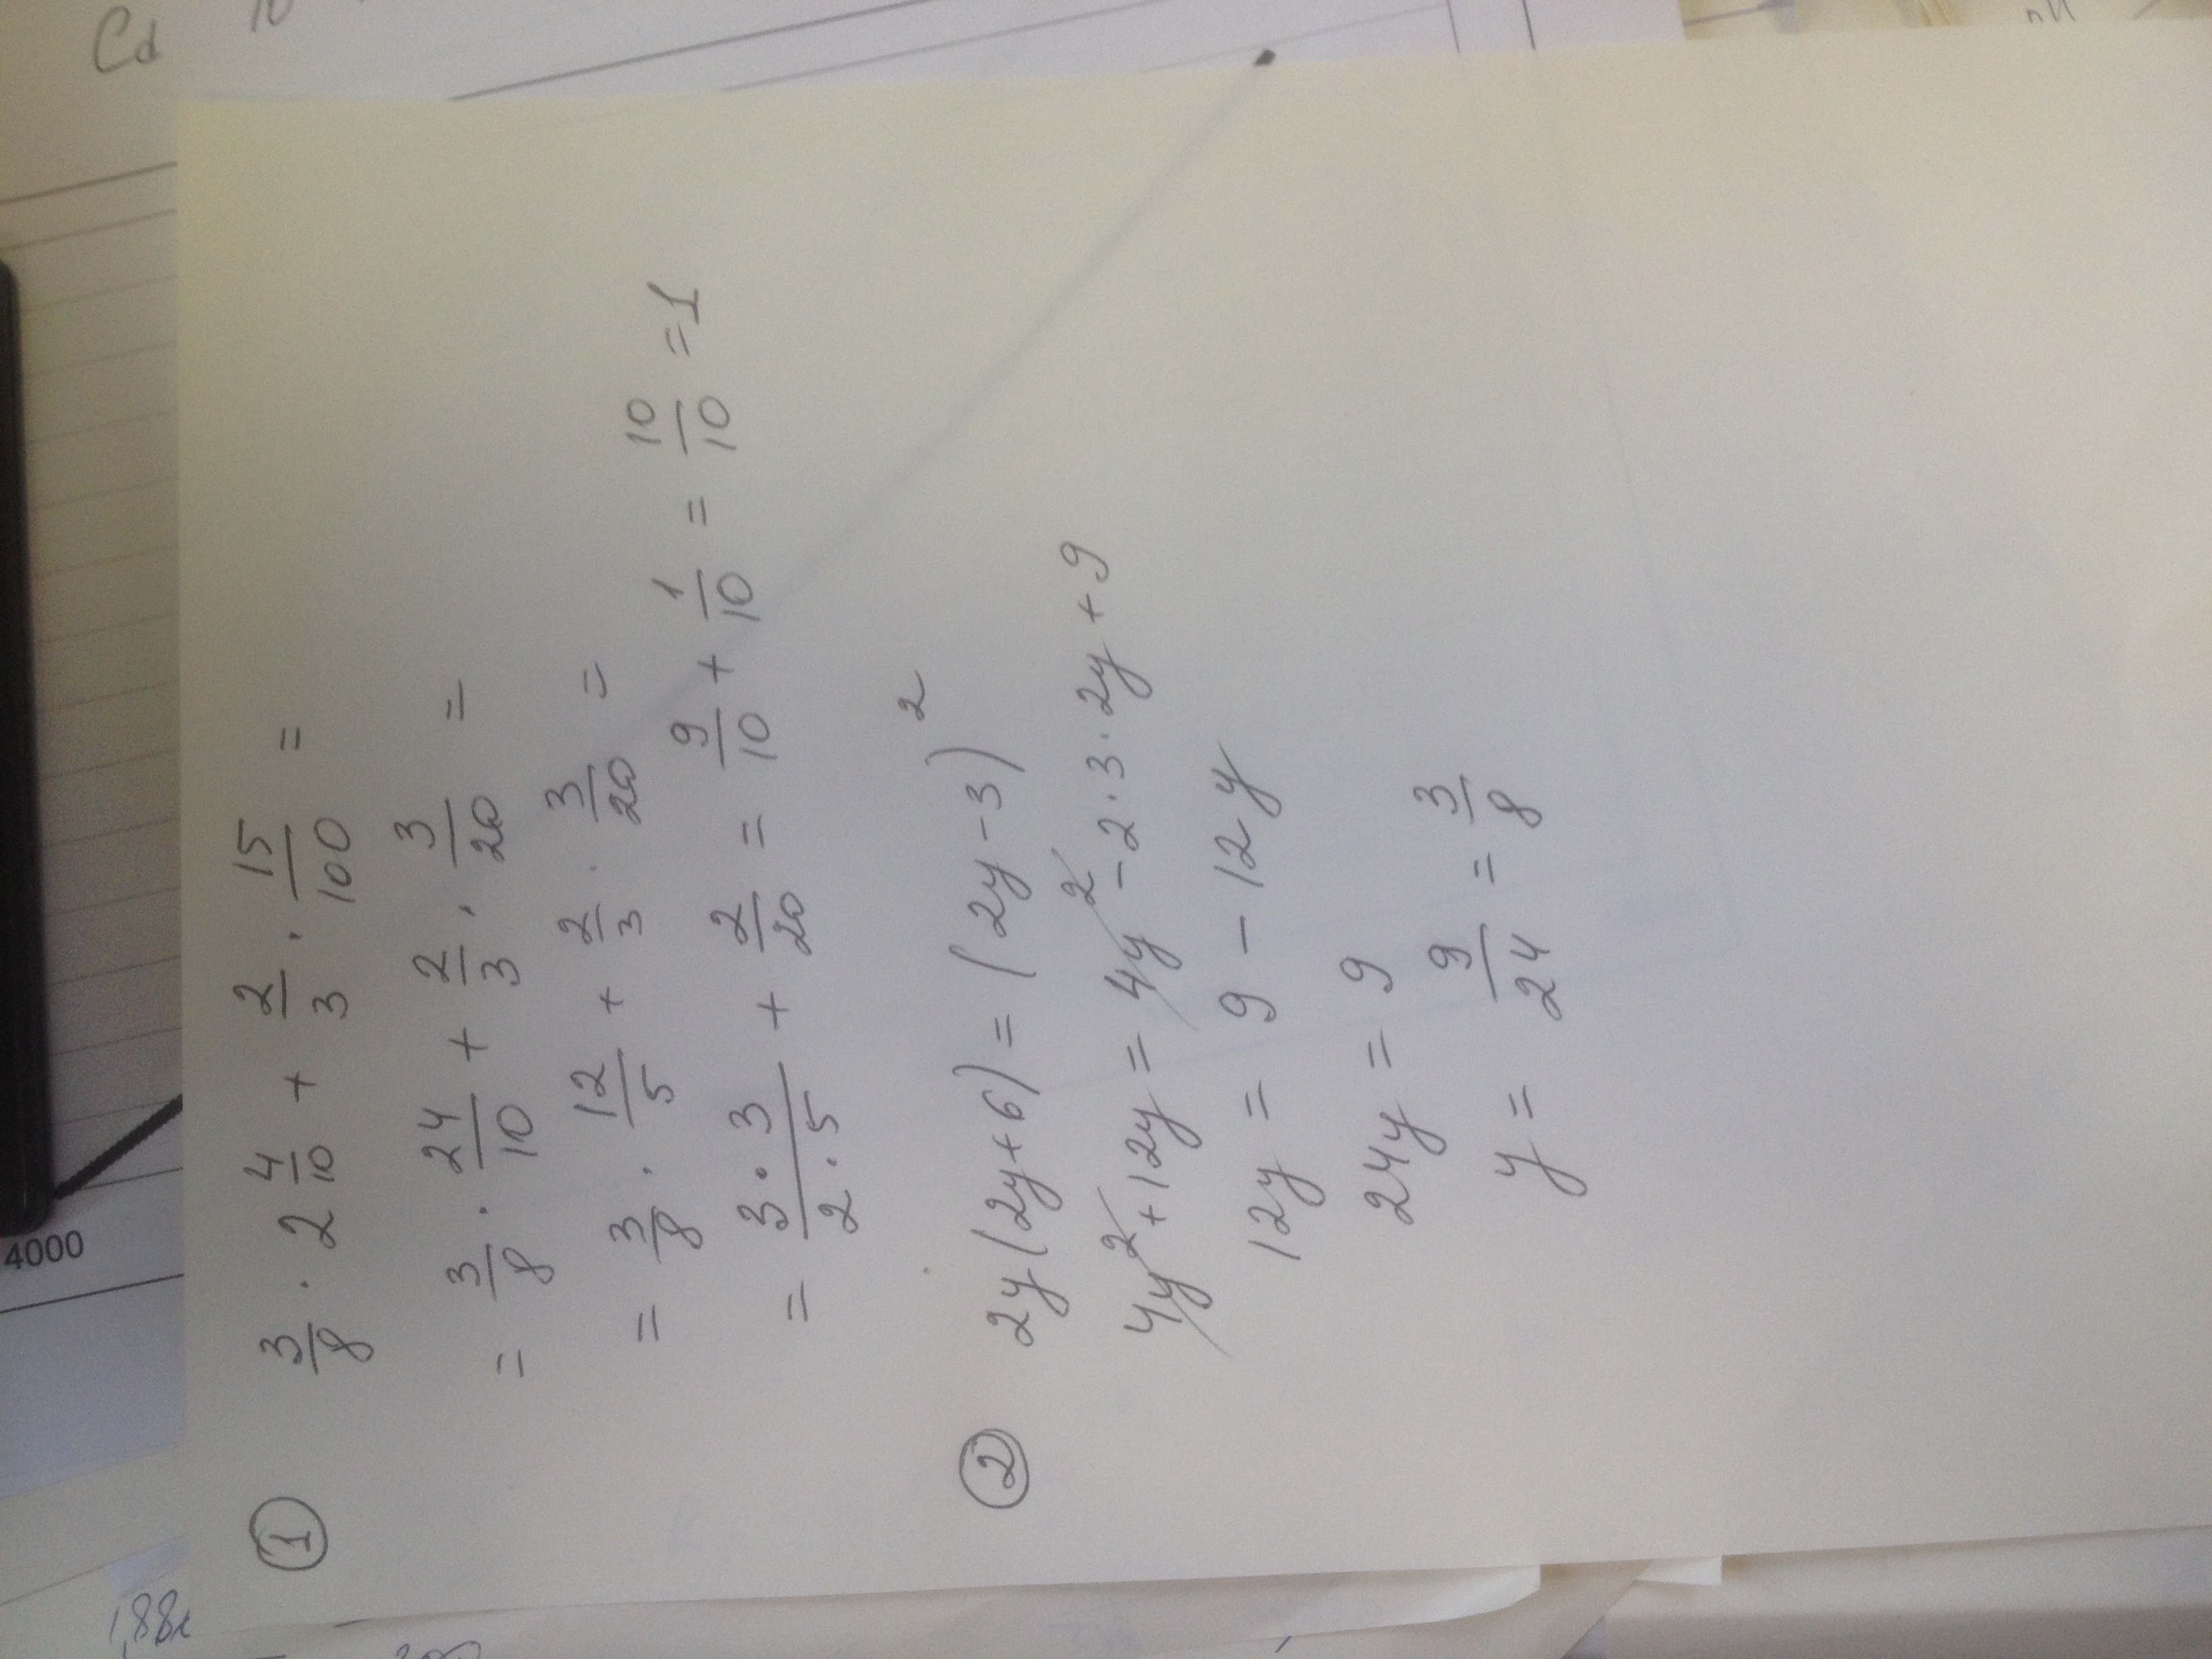 Cd 10
4000
1,88
① 3/8 · 2 4/10 + 2/3 · 15/100 =
= 3/8 · 24/10 + 2/3 · 3/20 =
= 3/8 · 12/5 + 2/3 · 3/20 =
= 3·3/2·5 + 2/20 = 9/10 + 1/10 = 10/10 = 1
② 2y(2y+6) = (2y-3)²
4y²+12y = 4y² - 2·3·2y + 9
12y = 9 - 12y
24y = 9
y = 9/24 = 3/8